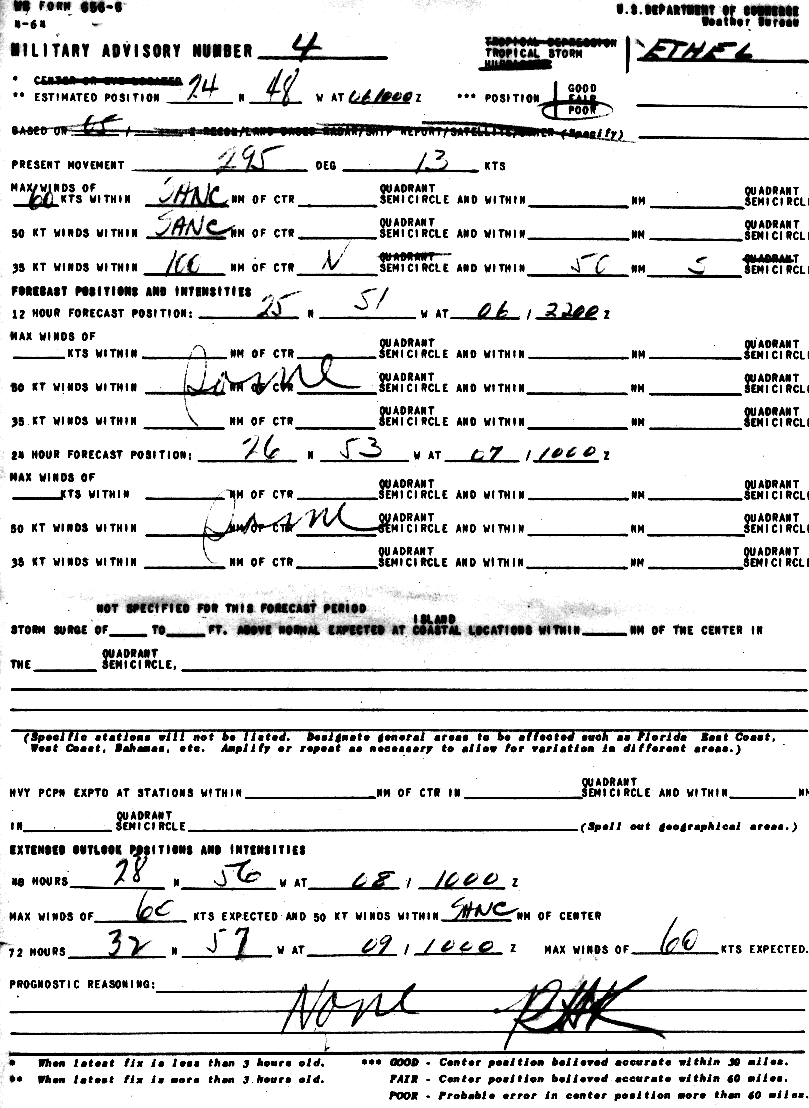 WB FORM 656-6 U.S. DEPARTMENT OF COMMERCE
4-64 Weather Bureau
MILITARY ADVISORY NUMBER 4 TROPICAL DEPRESSION
TROPICAL STORM ETHEL
HURRICANE
* CENTER OR EYE LOCATED
** ESTIMATED POSITION 24 N 48 W AT 06/1000 Z *** POSITION GOOD
FAIR
POOR
BASED ON / RECON/LAND BASED RADAR/SHIP REPORT/SATELLITE/OTHER (Specify)
PRESENT MOVEMENT 295 DEG 13 KTS
MAX WINDS OF QUADRANT QUADRANT
60 KTS WITHIN SANC NM OF CTR SEMICIRCLE AND WITHIN NM SEMICIRCL
50 KT WINDS WITHIN SANC NM OF CTR QUADRANT SEMICIRCLE AND WITHIN NM QUADRANT SEMICIRCL
35 KT WINDS WITHIN 100 NM OF CTR N QUADRANT SEMICIRCLE AND WITHIN 50 NM S QUADRANT SEMICIRCL
FORECAST POSITIONS AND INTENSITIES
12 HOUR FORECAST POSITION: 25 N 51 W AT 06 / 2200 Z
MAX WINDS OF QUADRANT QUADRANT
KTS WITHIN NM OF CTR SEMICIRCLE AND WITHIN NM SEMICIRCL
50 KT WINDS WITHIN Same NM OF CTR QUADRANT SEMICIRCLE AND WITHIN NM QUADRANT SEMICIRCL
35 KT WINDS WITHIN NM OF CTR QUADRANT SEMICIRCLE AND WITHIN NM QUADRANT SEMICIRCL
24 HOUR FORECAST POSITION: 26 N 53 W AT 07 / 1000 Z
MAX WINDS OF QUADRANT QUADRANT
KTS WITHIN NM OF CTR SEMICIRCLE AND WITHIN NM SEMICIRCL
50 KT WINDS WITHIN Same NM OF CTR QUADRANT SEMICIRCLE AND WITHIN NM QUADRANT SEMICIRCL
35 KT WINDS WITHIN NM OF CTR QUADRANT SEMICIRCLE AND WITHIN NM QUADRANT SEMICIRCL
NOT SPECIFIED FOR THIS FORECAST PERIOD
ISLAND
STORM SURGE OF TO FT. ABOVE NORMAL EXPECTED AT COASTAL LOCATIONS WITHIN NM OF THE CENTER IN
THE QUADRANT SEMICIRCLE,
(Specific stations will not be listed. Designate general areas to be affected such as Florida East Coast,
West Coast, Bahamas, etc. Amplify or repeat as necessary to allow for variation in different areas.)
HVY PCPN EXPTD AT STATIONS WITHIN NM OF CTR IN QUADRANT SEMICIRCLE AND WITHIN NM
IN QUADRANT SEMICIRCLE (Spell out geographical areas.)
EXTENDED OUTLOOK POSITIONS AND INTENSITIES
48 HOURS 28 N 56 W AT 08 / 1000 Z
MAX WINDS OF 60 KTS EXPECTED AND 50 KT WINDS WITHIN SANC NM OF CENTER
72 HOURS 32 N 57 W AT 09 / 1000 Z MAX WINDS OF 60 KTS EXPECTED.
PROGNOSTIC REASONING:
None
* When latest fix is less than 3 hours old. *** GOOD - Center position believed accurate within 30 miles.
** When latest fix is more than 3 hours old. FAIR - Center position believed accurate within 60 miles.
POOR - Probable error in center position more than 60 miles.